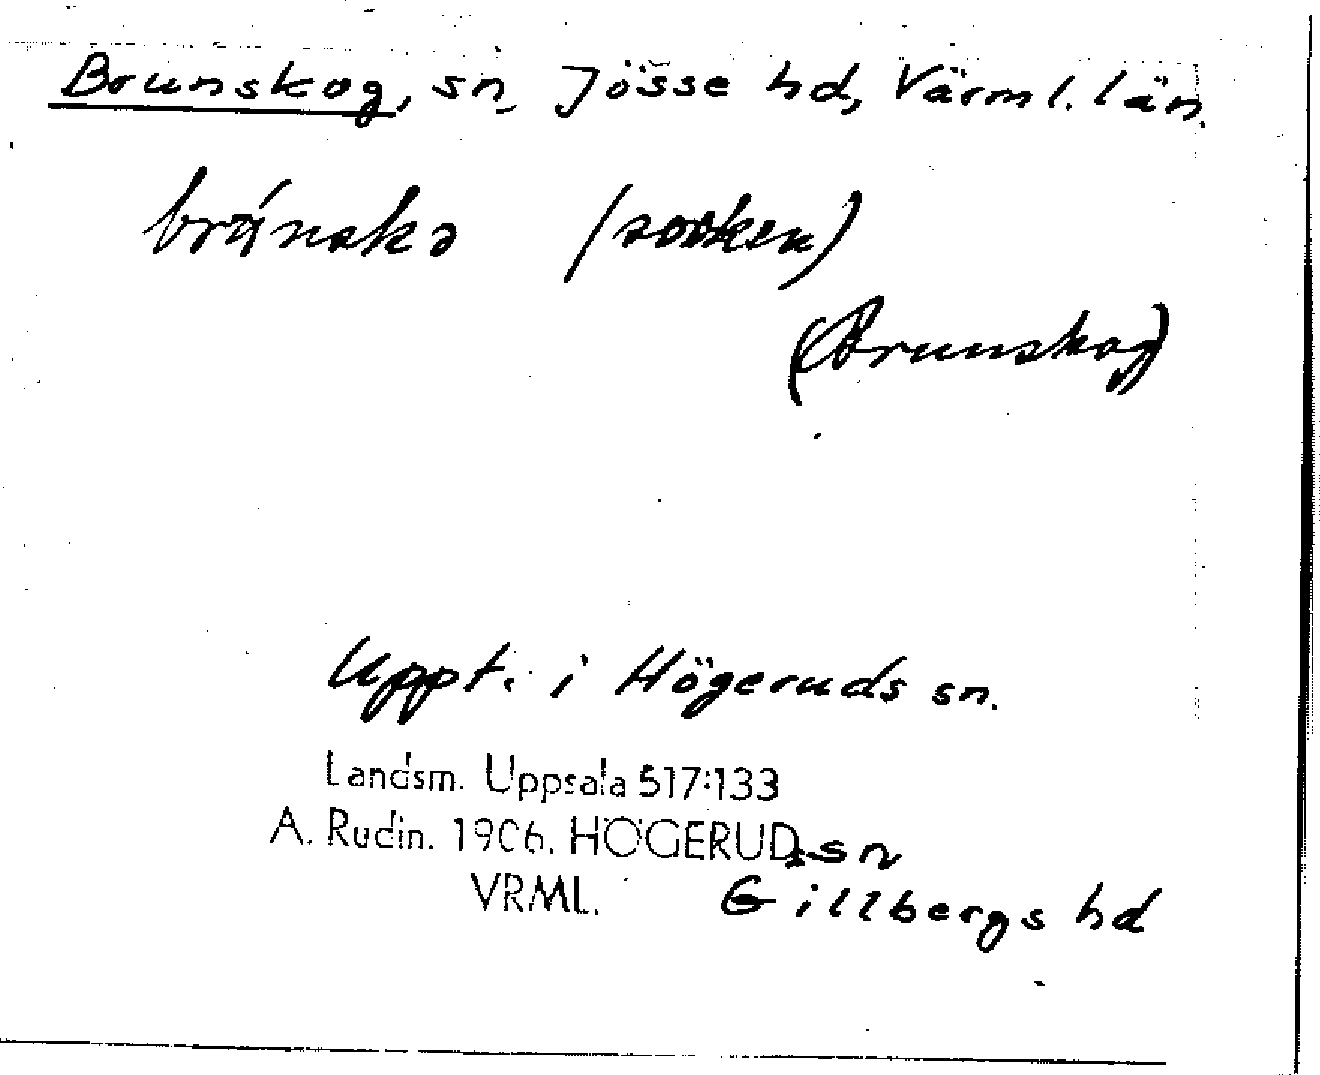 Brunskog, sn, Jösse hd, Värml. län.
bránskə (socken)
(Brunskog)
Uppt. i Högeruds sn.
Landsm. Uppsala 517:133
A. Rudin. 1906. HÖGERUDs sn
VRML. Gillbergs hd